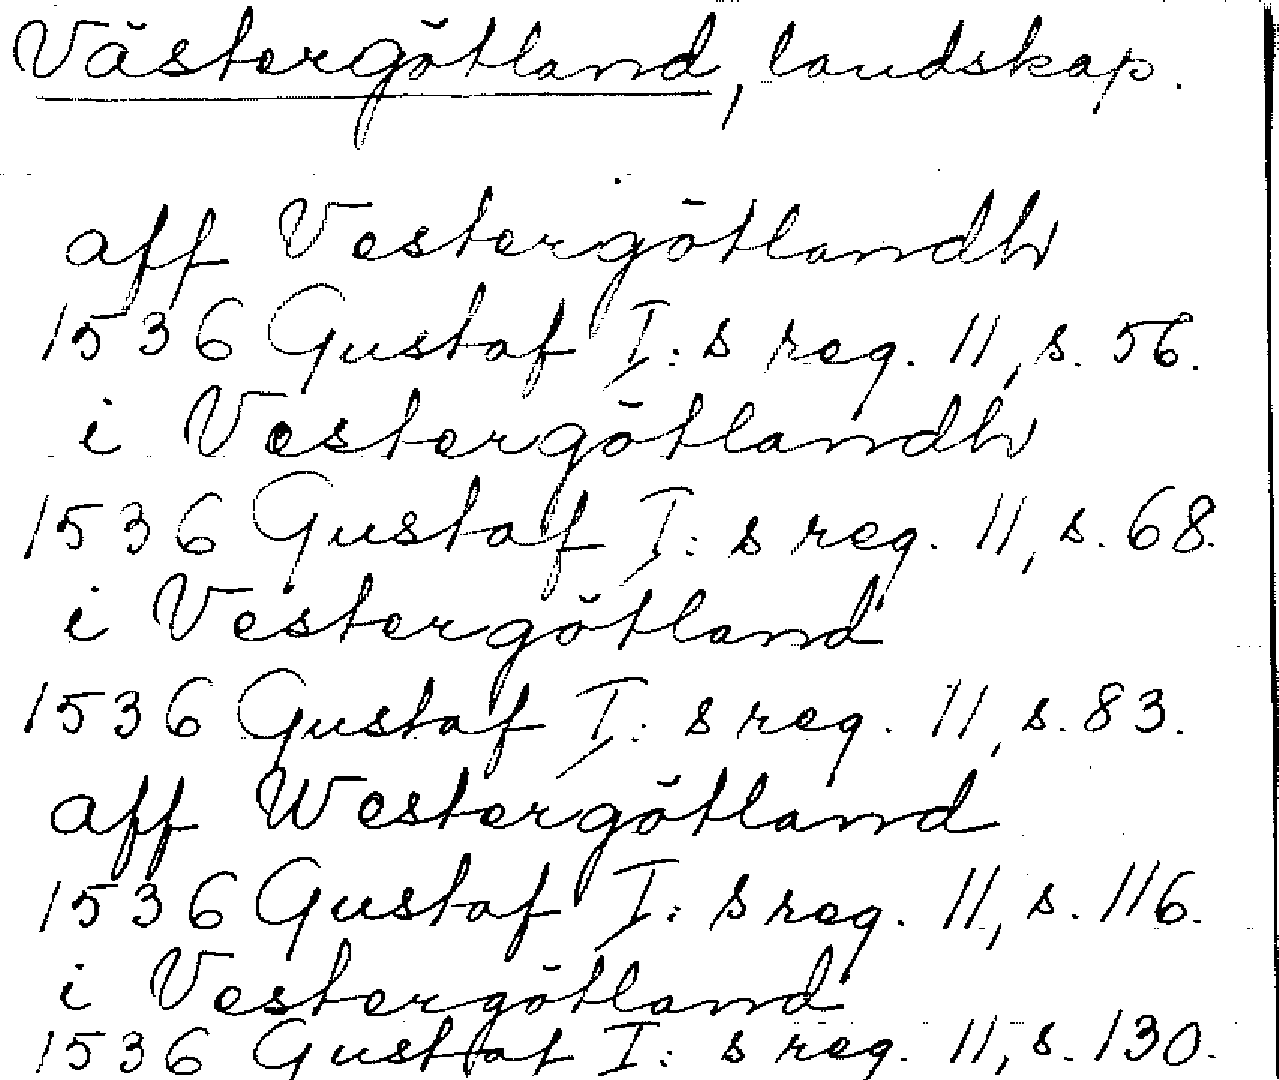 Västergötland, landskap.
aff Vestergötlandh
1536 Gustaf I:s reg. 11, s. 56.
i Vestergötlandh
1536 Gustaf I:s reg. 11, s. 68.
i Vestergötland
1536 Gustaf I:s reg. 11, s. 83.
aff Westergötland
1536 Gustaf I:s reg. 11, s. 116.
i Vestergötland
1536 Gustaf I:s reg. 11, s. 130.